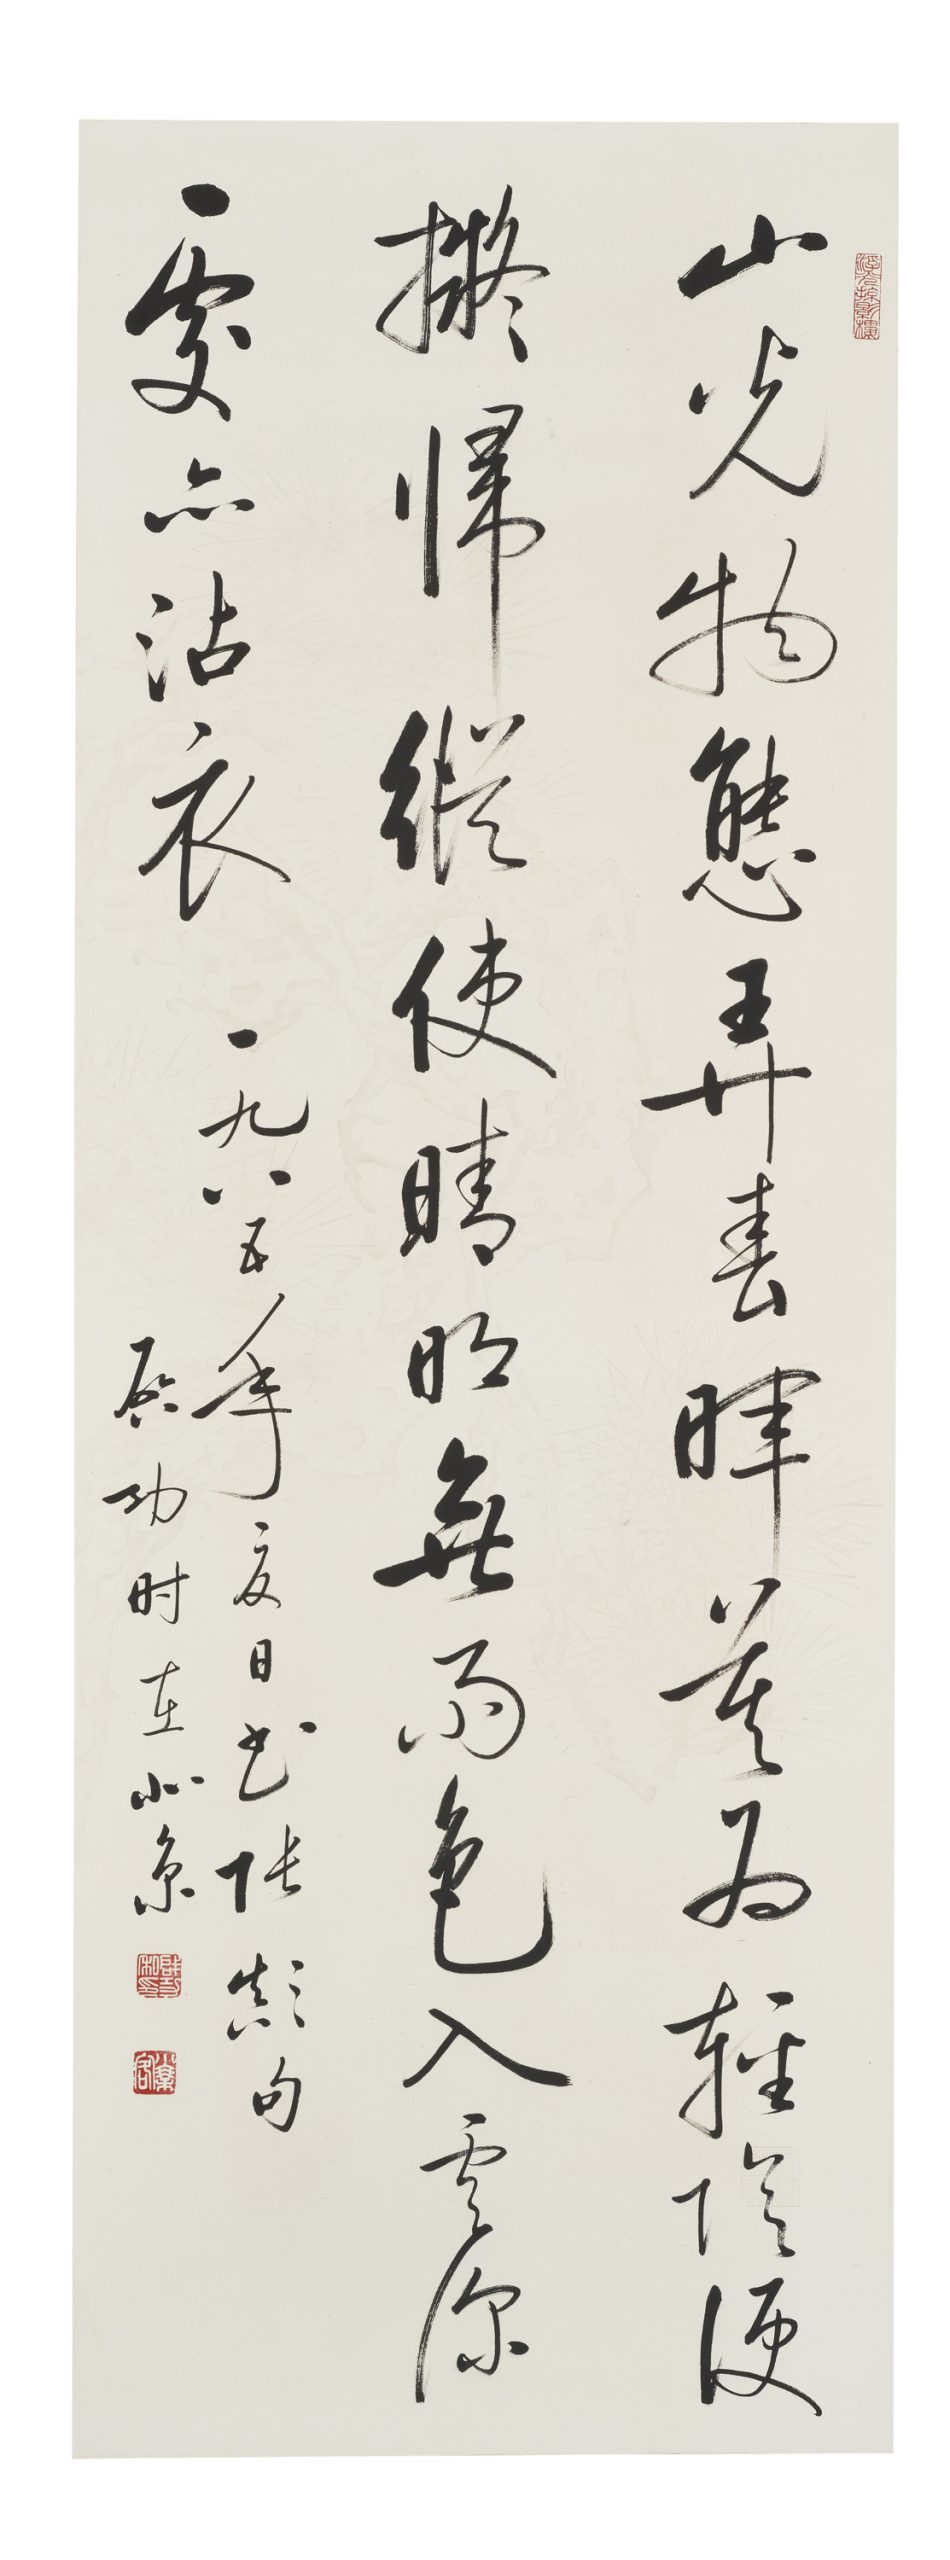 山光物態弄春暉莫为輕陰便
擬歸縱使晴明無雨色入雲深
處亦沾衣
一九八五年夏日书张颠句
启功时在北京